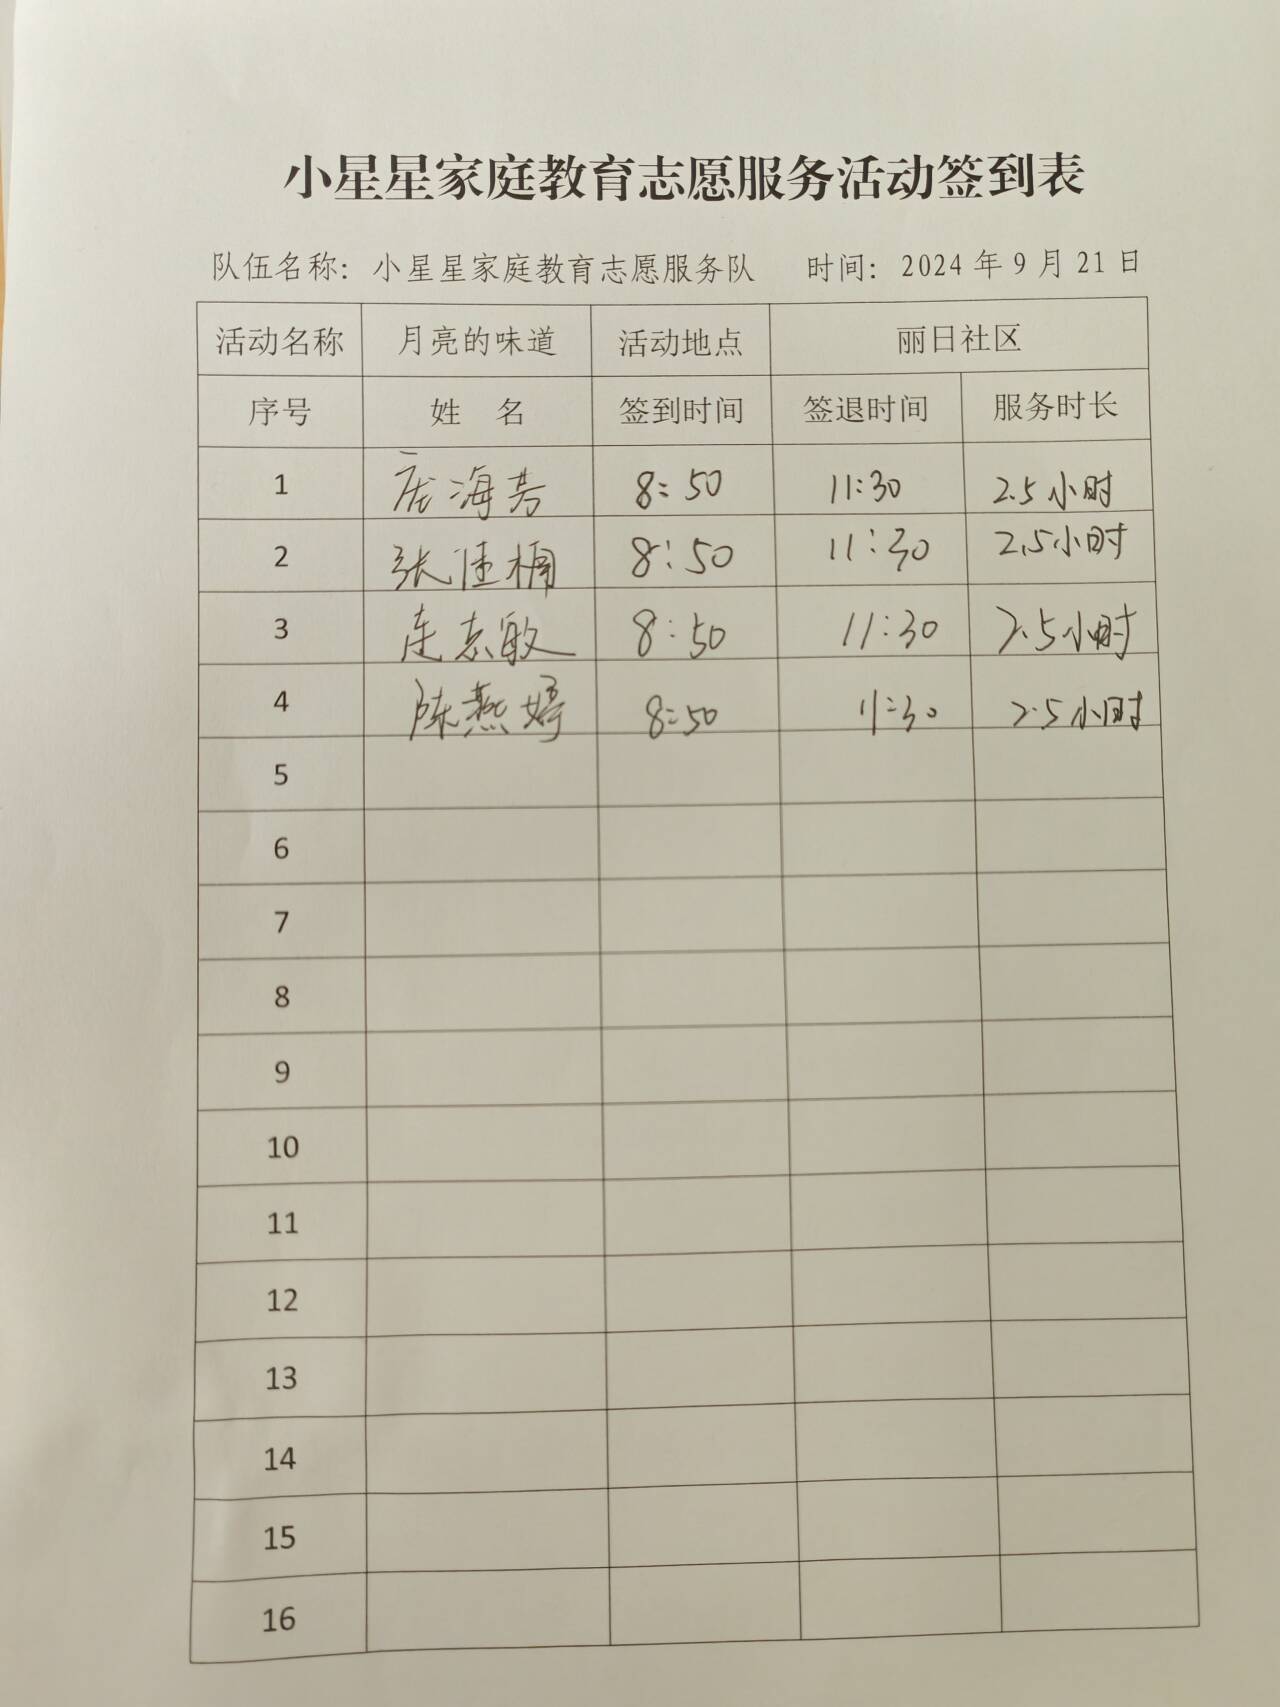 小星星家庭教育志愿服务活动签到表
队伍名称：小星星家庭教育志愿服务队 时间：2024年9月21日
活动名称 月亮的味道 活动地点 丽日社区
序号 姓 名 签到时间 签退时间 服务时长
1 庞海芳 8:50 11:30 2.5小时
2 张佳楠 8:50 11:30 2.5小时
3 连志敏 8:50 11:30 2.5小时
4 陈燕婷 8:50 11:30 2.5小时
5
6
7
8
9
10
11
12
13
14
15
16